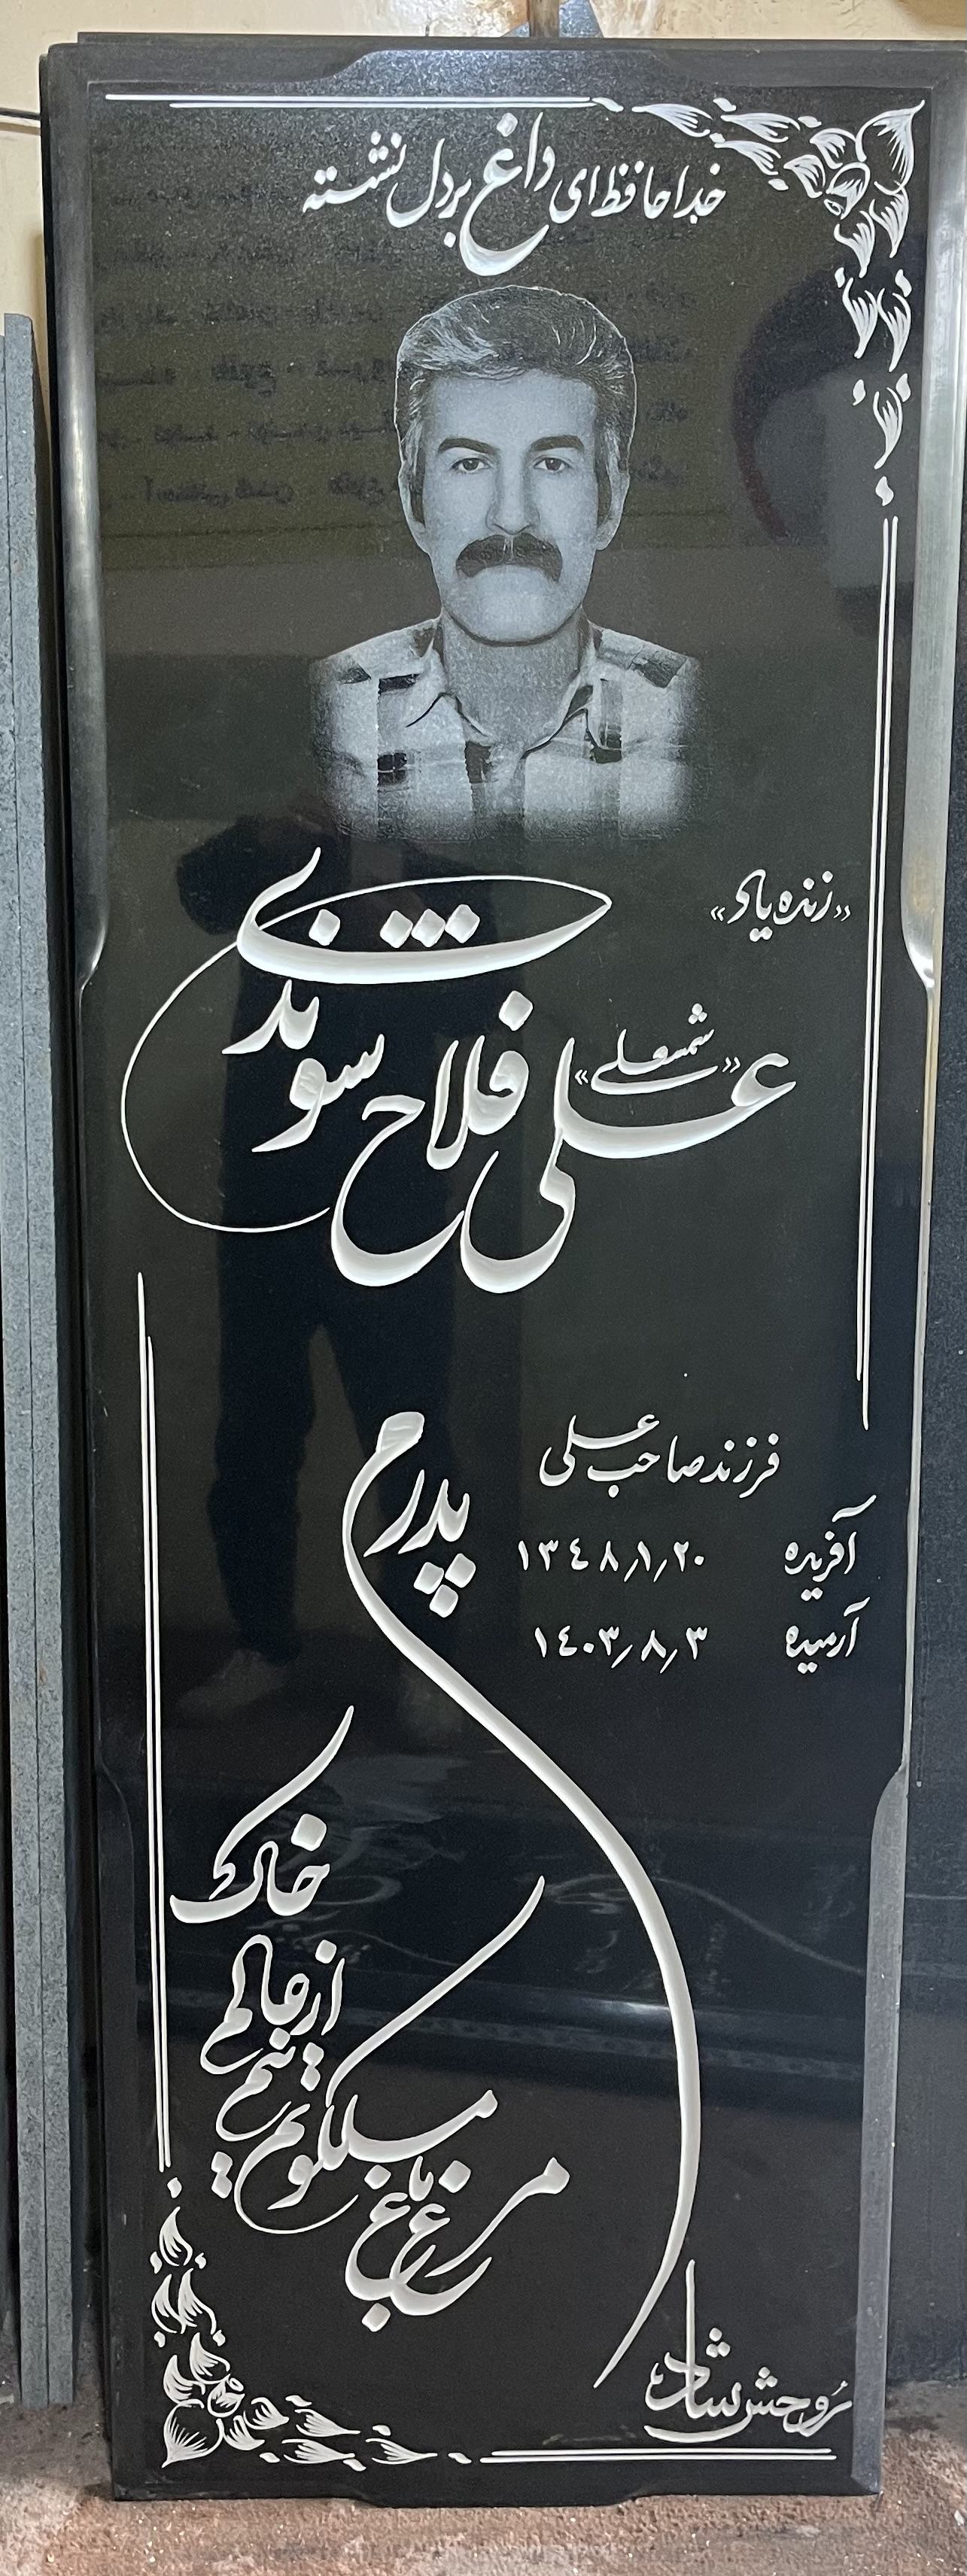 خداحافظ ای داغ بر دل نشسته
«زنده یاد»
علی فلاح سوندی
«شمسعلی»
فرزند صاحب علی
آفریده ۱۳٤۸/۱/۲۰
آرمیده ۱٤۰۳/۸/۳
پدرم
مرغ باغ ملکوتم
نیم از عالم خاک
روحش شاد